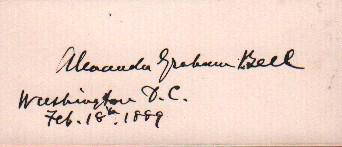 Alexander Graham Bell
Washington D.C.
Feb. 18th. 1889